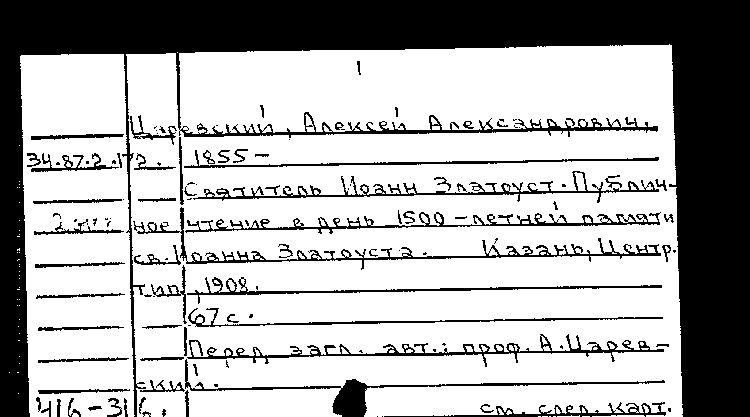 1
Царевский, Алексей Александрович.
34.87.2.172. 1855 –
Святитель Иоанн Златоуст. Публич-
ное чтение в день 1500-летней памяти
св. Иоанна Златоуста. Казань, Центр.
тип., 1908.
67 с.
Перед загл. авт.: проф. А. Царев-
ский.
416-316. см. след. карт.